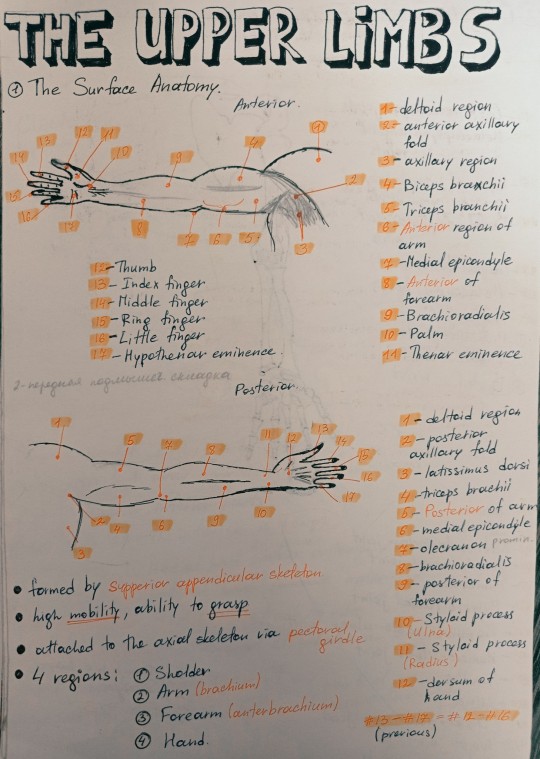 THE UPPER LIMBS
① The Surface Anatomy.
Anterior.
1 - deltoid region
2 - anterior axillary
fold
3 - axillary region
4 - Biceps braxchii
5 - Triceps branchii
6 - Anterior region of
arm
7 - Medial epicondyle
8 - Anterior of
forearm
9 - Brachioradialis
10 - Palm
11 - Thenar eminence
12 - Thumb
13 - Index finger
14 - Middle finger
15 - Ring finger
16 - Little finger
17 - Hypothenar eminence
13
12
11
10
9
4
1
14
15
16
17
8
7
6
5
3
2
2-передняя подмышеч. складка
Posterior.
1
5
7
8
11
12
13
14
15
16
17
2
4
6
9
10
3
1 - deltoid region
2 - posterior
axillary fold
3 - latissimus dorsi
4 - triceps brachii
5 - Posterior of arm
6 - medial epicondyle
7 - olecranon
8 - brachioradialis
9 - posterior of
forearm
10 - Styloid process
(Ulna)
11 - Styloid process
(Radius)
12 - dorsum of
hand
#13 - #17 = # 12 - #16
(previous)
• formed by Supperior appendicular skeleton
• high mobility, ability to grasp
• attached to the axial skeleton via pectoral
girdle
• 4 regions: ① Sholder
② Arm (brachium)
③ Forearm (anterbrachium)
④ Hand.